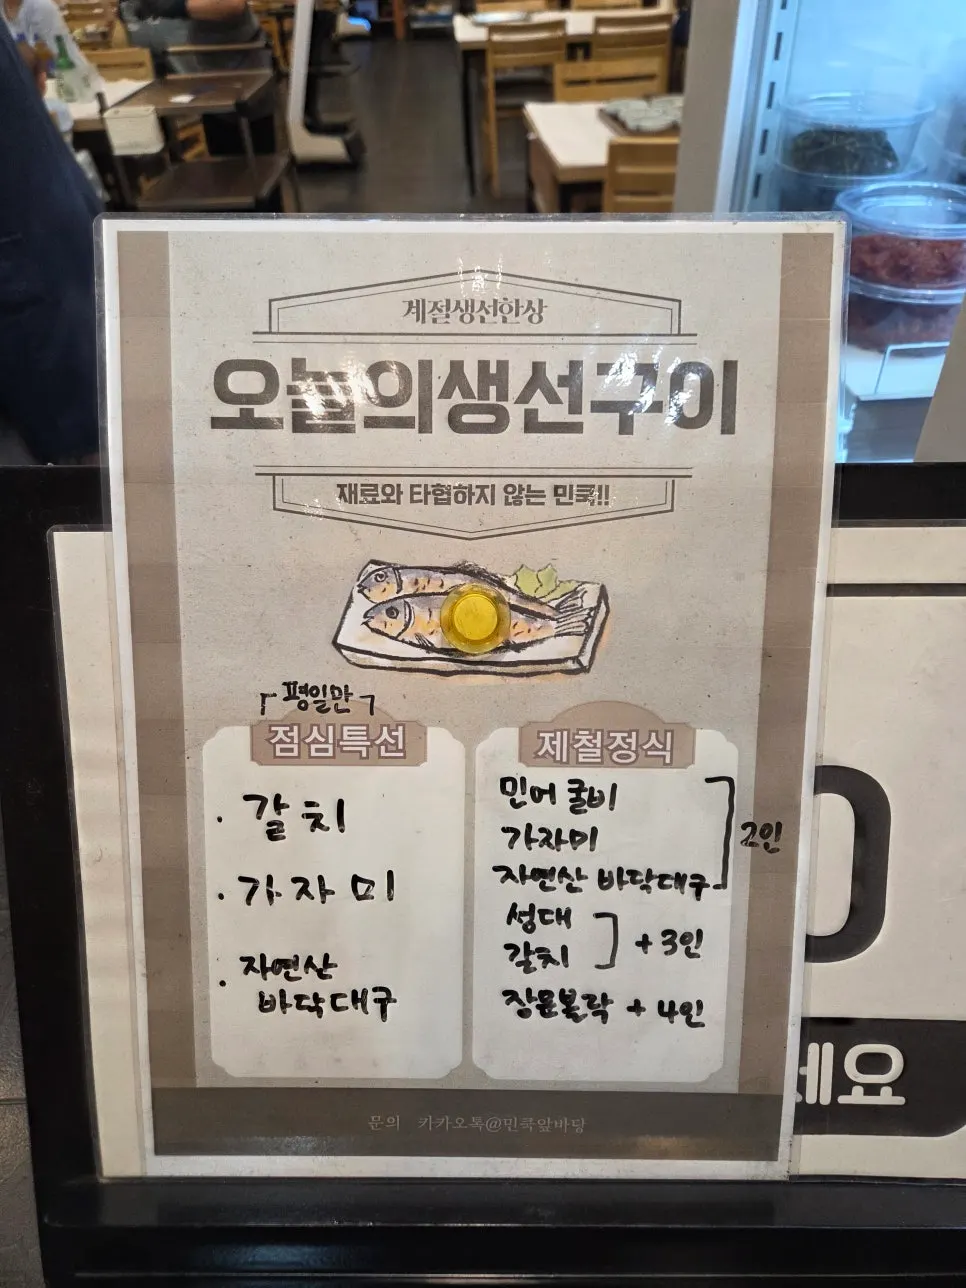 계절생선한상
오늘의생선구이
재료와 타협하지 않는 민쿡!!
「평일만」
점심특선
· 갈치
· 가자미
· 자연산
바닥대구
제철정식
민어굴비
가자미
자연산 바닥대구
2인
성대
갈치
+3인
장문볼락 +4인
문의 카카오톡@민쿡앞바당
세요